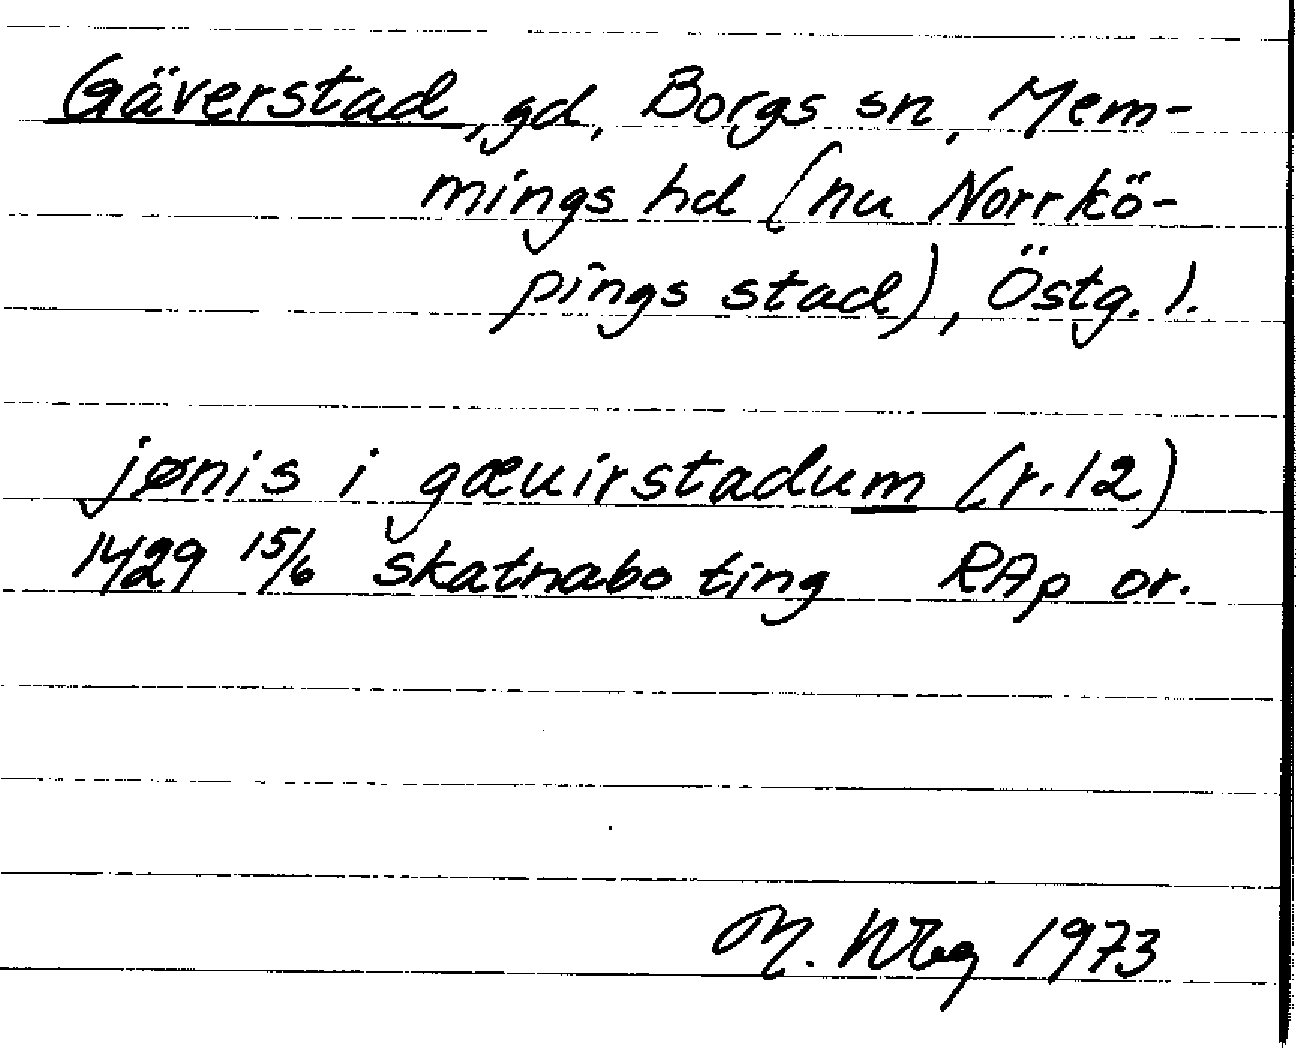 Gäverstad, gd, Borgs sn, Mem-
mings hd (nu Norrkö-
pings stad), Östg. l.
jønis i gæuirstadum (r. 12)
1429 15/6 skatnabo ting RAp or.
M. 1973